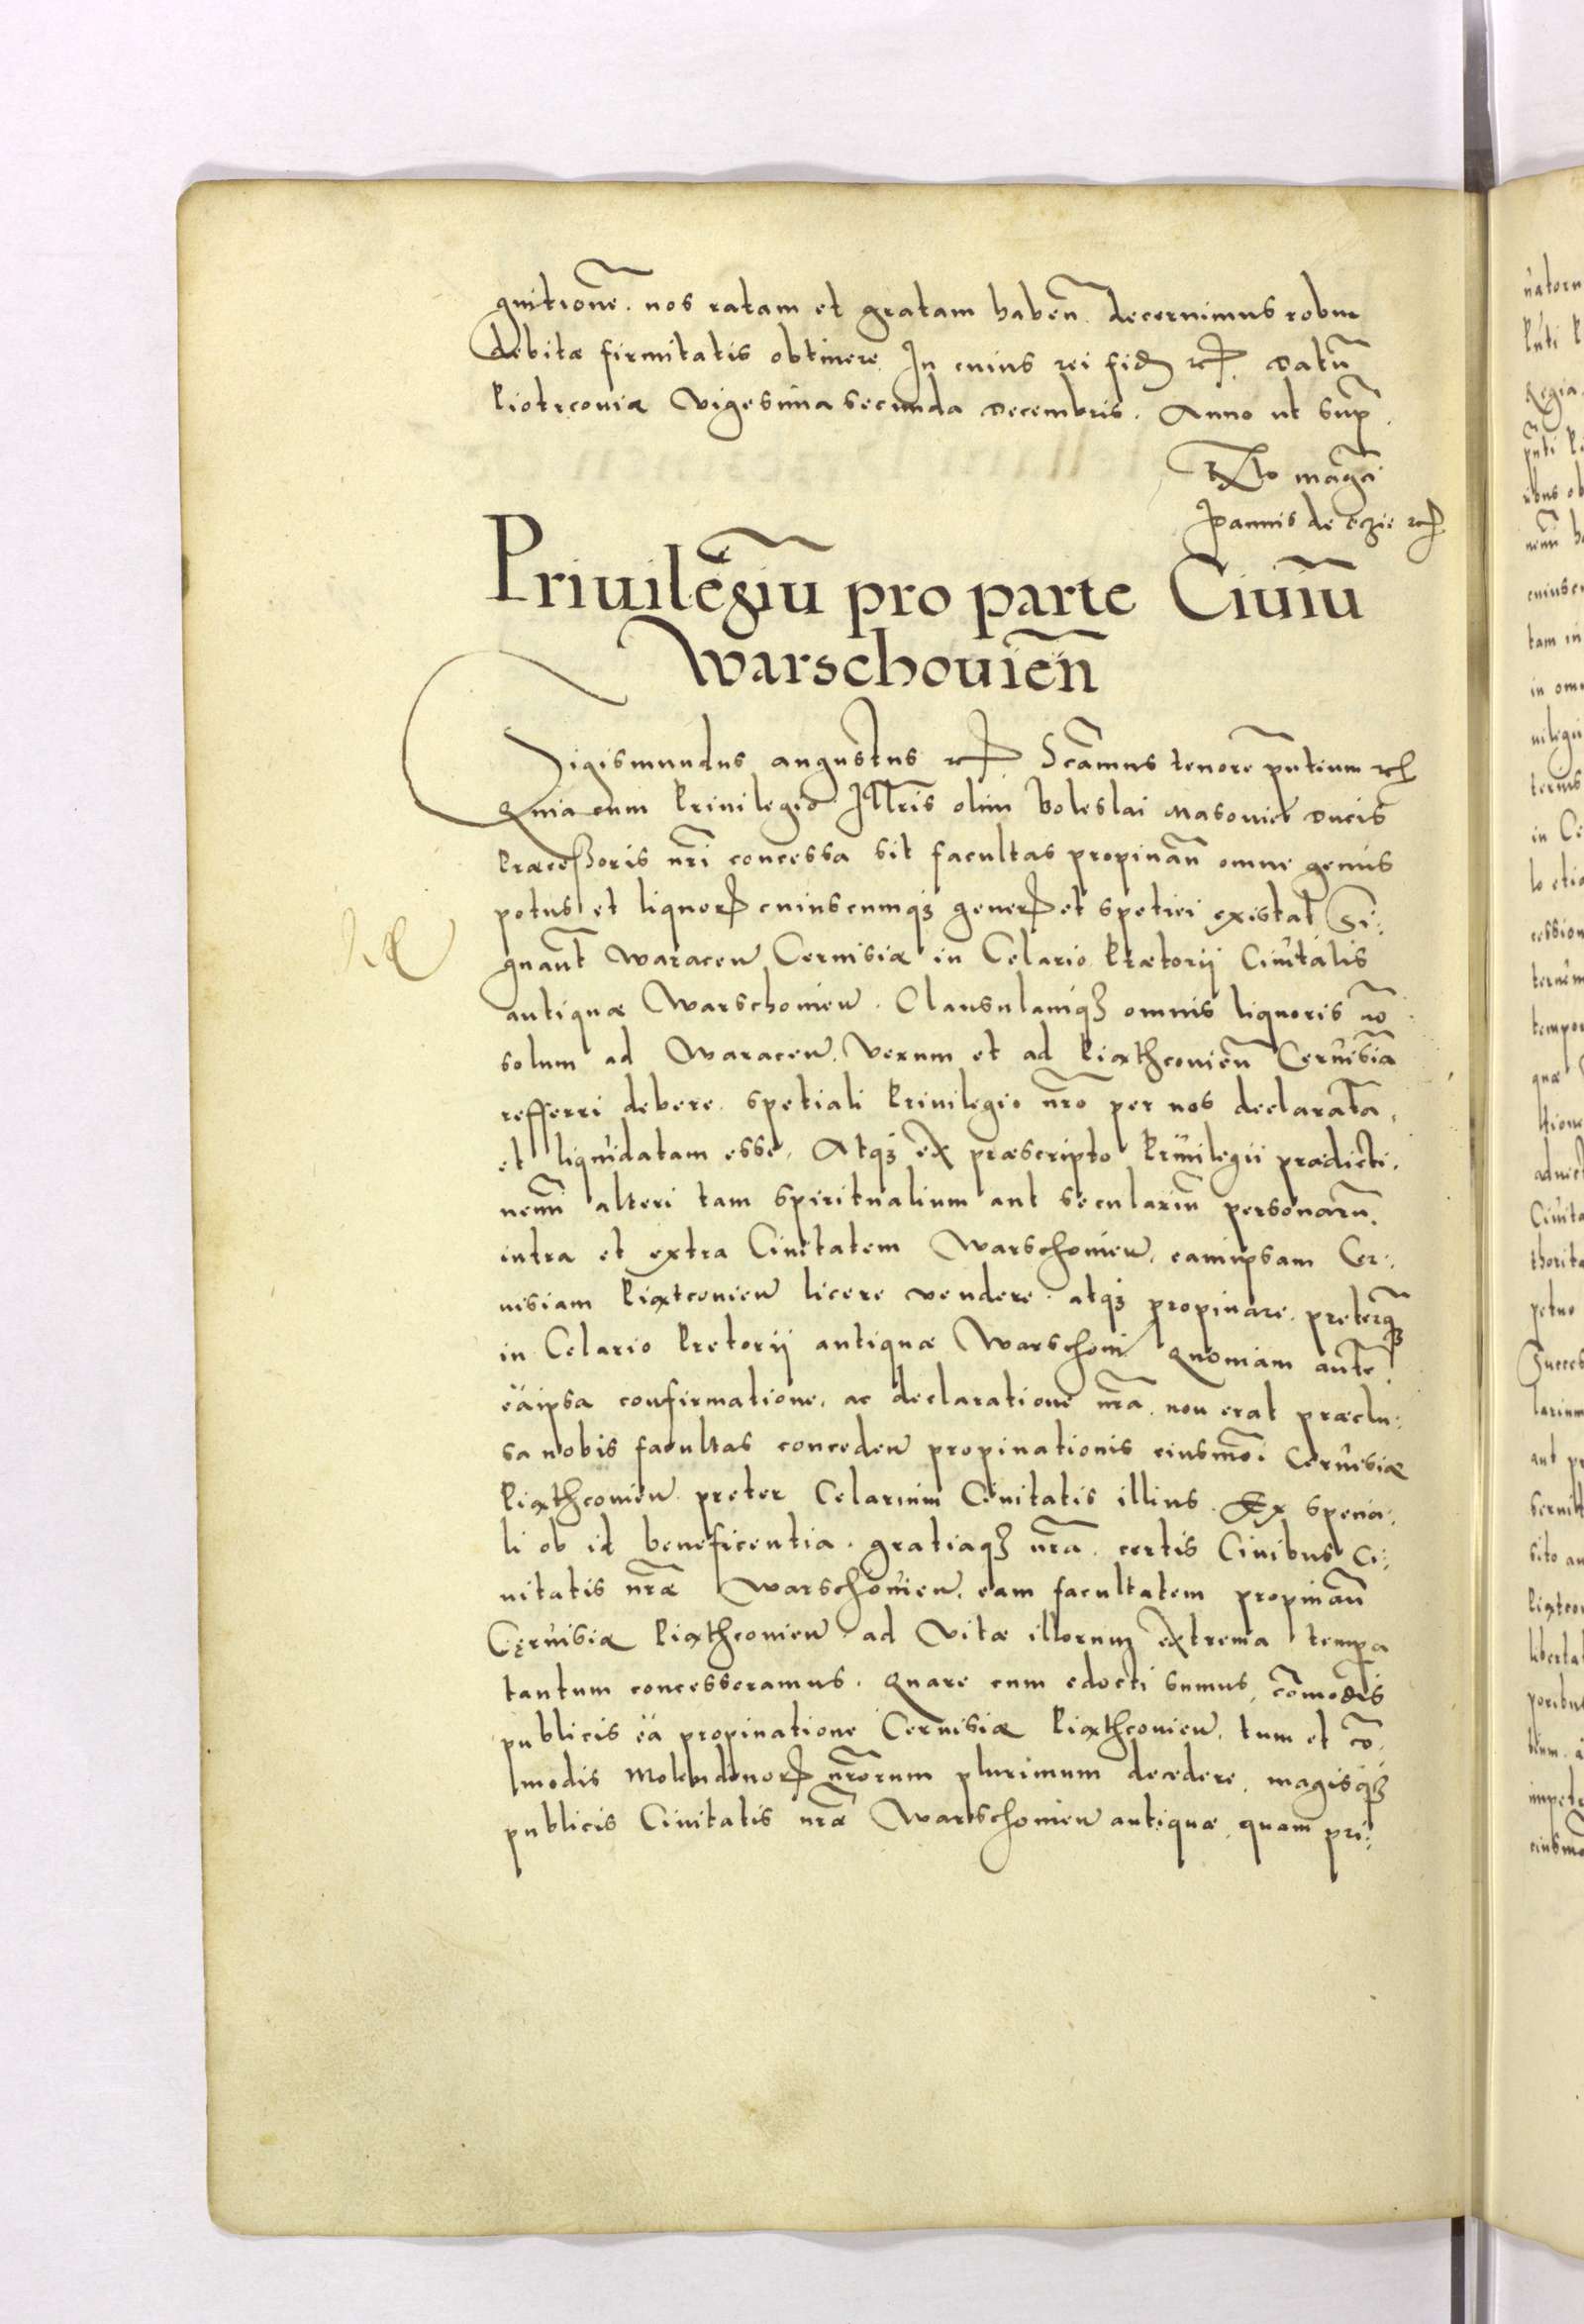 gnitionẽ. nos ratam et gratam habeñ. decernimus robur
debitæ firmitatis obtinere. In cuius rei fidẽ etc. Datũ
Piotrcoviæ vigesima secunda Decembris. Anno ut supˉ.
Rlo magˉci
Joannis de Oczie etc
Priuilẽgiũ pro parte Ciuiũ
Warschouieñ
Sigismundus augustus etc. Scãmus tenorẽ pñtium etc
Quia cum Priuilegio Illr̃is olim Boleslai Masouiæ Ducis
Præceßoris nr̃i concessa sit facultas propinañ omne genus
potus et liquorꝝ cuiuscumqꝫ generꝝ et spetiei existat Si-
gnañt Waraceñ Ceruisiæ in Celario Prætorij Ciuitatis
antiquæ Warschouieñ. Clausulamqꝫ omnis liquoris nõ
solum ad Waraceñ. verum et ad Piathcouieñ Ceruisiã
refferri debere. spetiali Priuilegio nr̃o per nos declaratã.
et liquidatam esse. Atqꝫ ex præscripto Priuilegii prædicti.
nemĩ alteri tam spiritualium aut seculariũ personarũ.
intra et extra Ciuitatem Warschouieñ. eamipsam Cer-
uisiam Piatcouieñ licere vendere. atqꝫ propinare. preterqꝫ
in Celario Pretorij antiquæ Warschoui Quoniam autẽ
eaipsa confirmatione, ac declaratione nr̃a non erat præclu-
sa nobis facultas concedeñ propinationis eiusmõi Ceruisiæ
Piathcouieñ preter Celarium Ciuitatis illius. Ex specia-
li ob id beneficentia. gratiaqꝫ nr̃a. certis Ciuibus Ci-
uitatis nr̃æ Warschouieñ, eam facultatem propinañ
Cęruisiæ Piathcouieñ. ad vitæ illorum extrema tempa
tantum concesseramus. Quare cum edocti sumus, cõmodis
publicis ea propinatione Ceruisiæ Piathcouieñ. tum et cõ-
modis molendinorꝝ nr̃orum plurimum decedere, magisqꝫ
publicis Ciuitatis nr̃æ Warschouieñ antiquæ, quam pri-